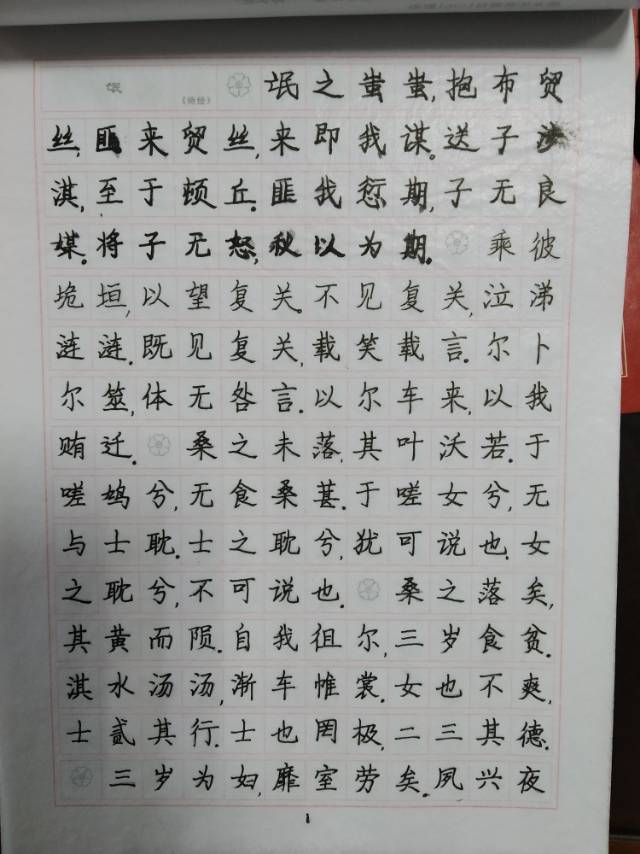 氓 《诗经》 氓之蚩蚩,抱布贸
丝,匪来贸丝,来即我谋。送子涉
淇,至于顿丘。匪我愆期,子无良
媒。将子无怒,秋以为期。乘彼
垝垣,以望复关。不见复关,泣涕
涟涟。既见复关,载笑载言。尔卜
尔筮,体无咎言。以尔车来,以我
贿迁。桑之未落,其叶沃若。于
嗟鸠兮,无食桑葚。于嗟女兮,无
与士耽。士之耽兮,犹可说也。女
之耽兮,不可说也。桑之落矣,
其黄而陨。自我徂尔,三岁食贫。
淇水汤汤,渐车帷裳。女也不爽,
士贰其行。士也罔极,二三其德。
三岁为妇,靡室劳矣。夙兴夜
1